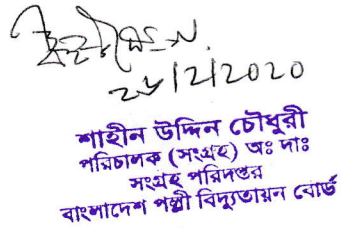 ২৬/২/২০২০
শাহীন উদ্দিন চৌধুরী
পরিচালক (সংগ্রহ) অঃ দাঃ
সংগ্রহ পরিদপ্তর
বাংলাদেশ পল্লী বিদ্যুতায়ন বোর্ড